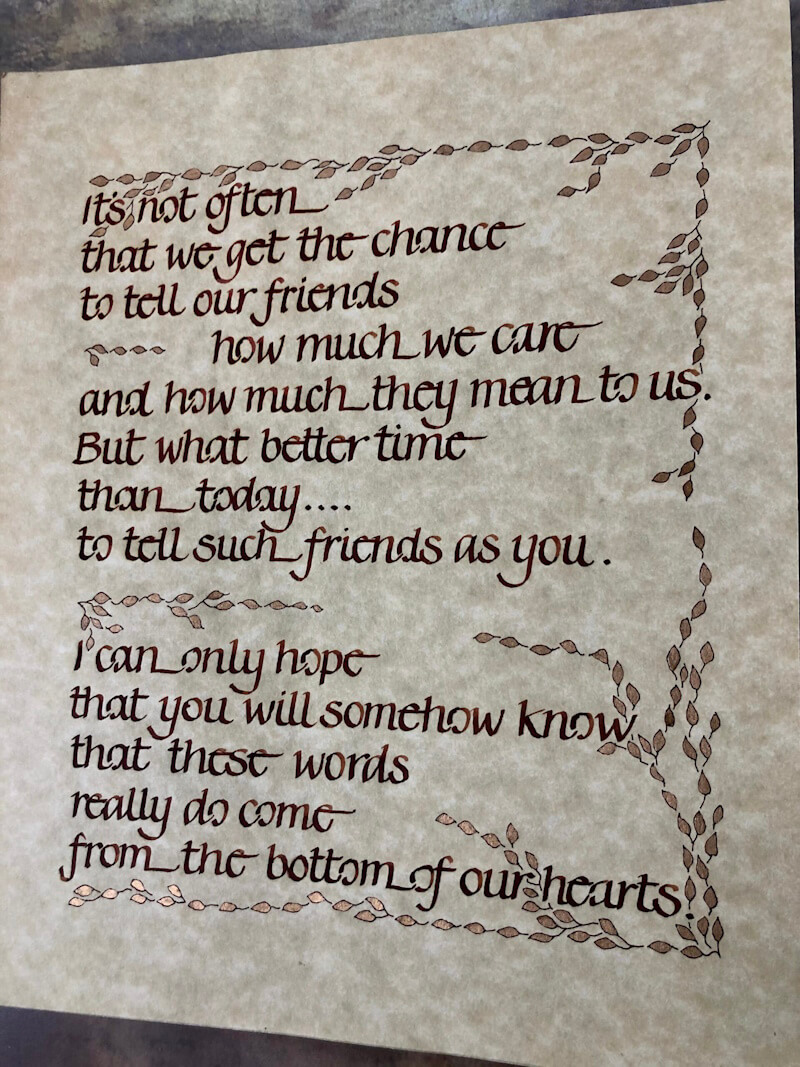 It's not often
that we get the chance
to tell our friends
how much we care
and how much they mean to us.
But what better time
than today....
to tell such friends as you.
I can only hope
that you will somehow know
that these words
really do come
from the bottom of our hearts.